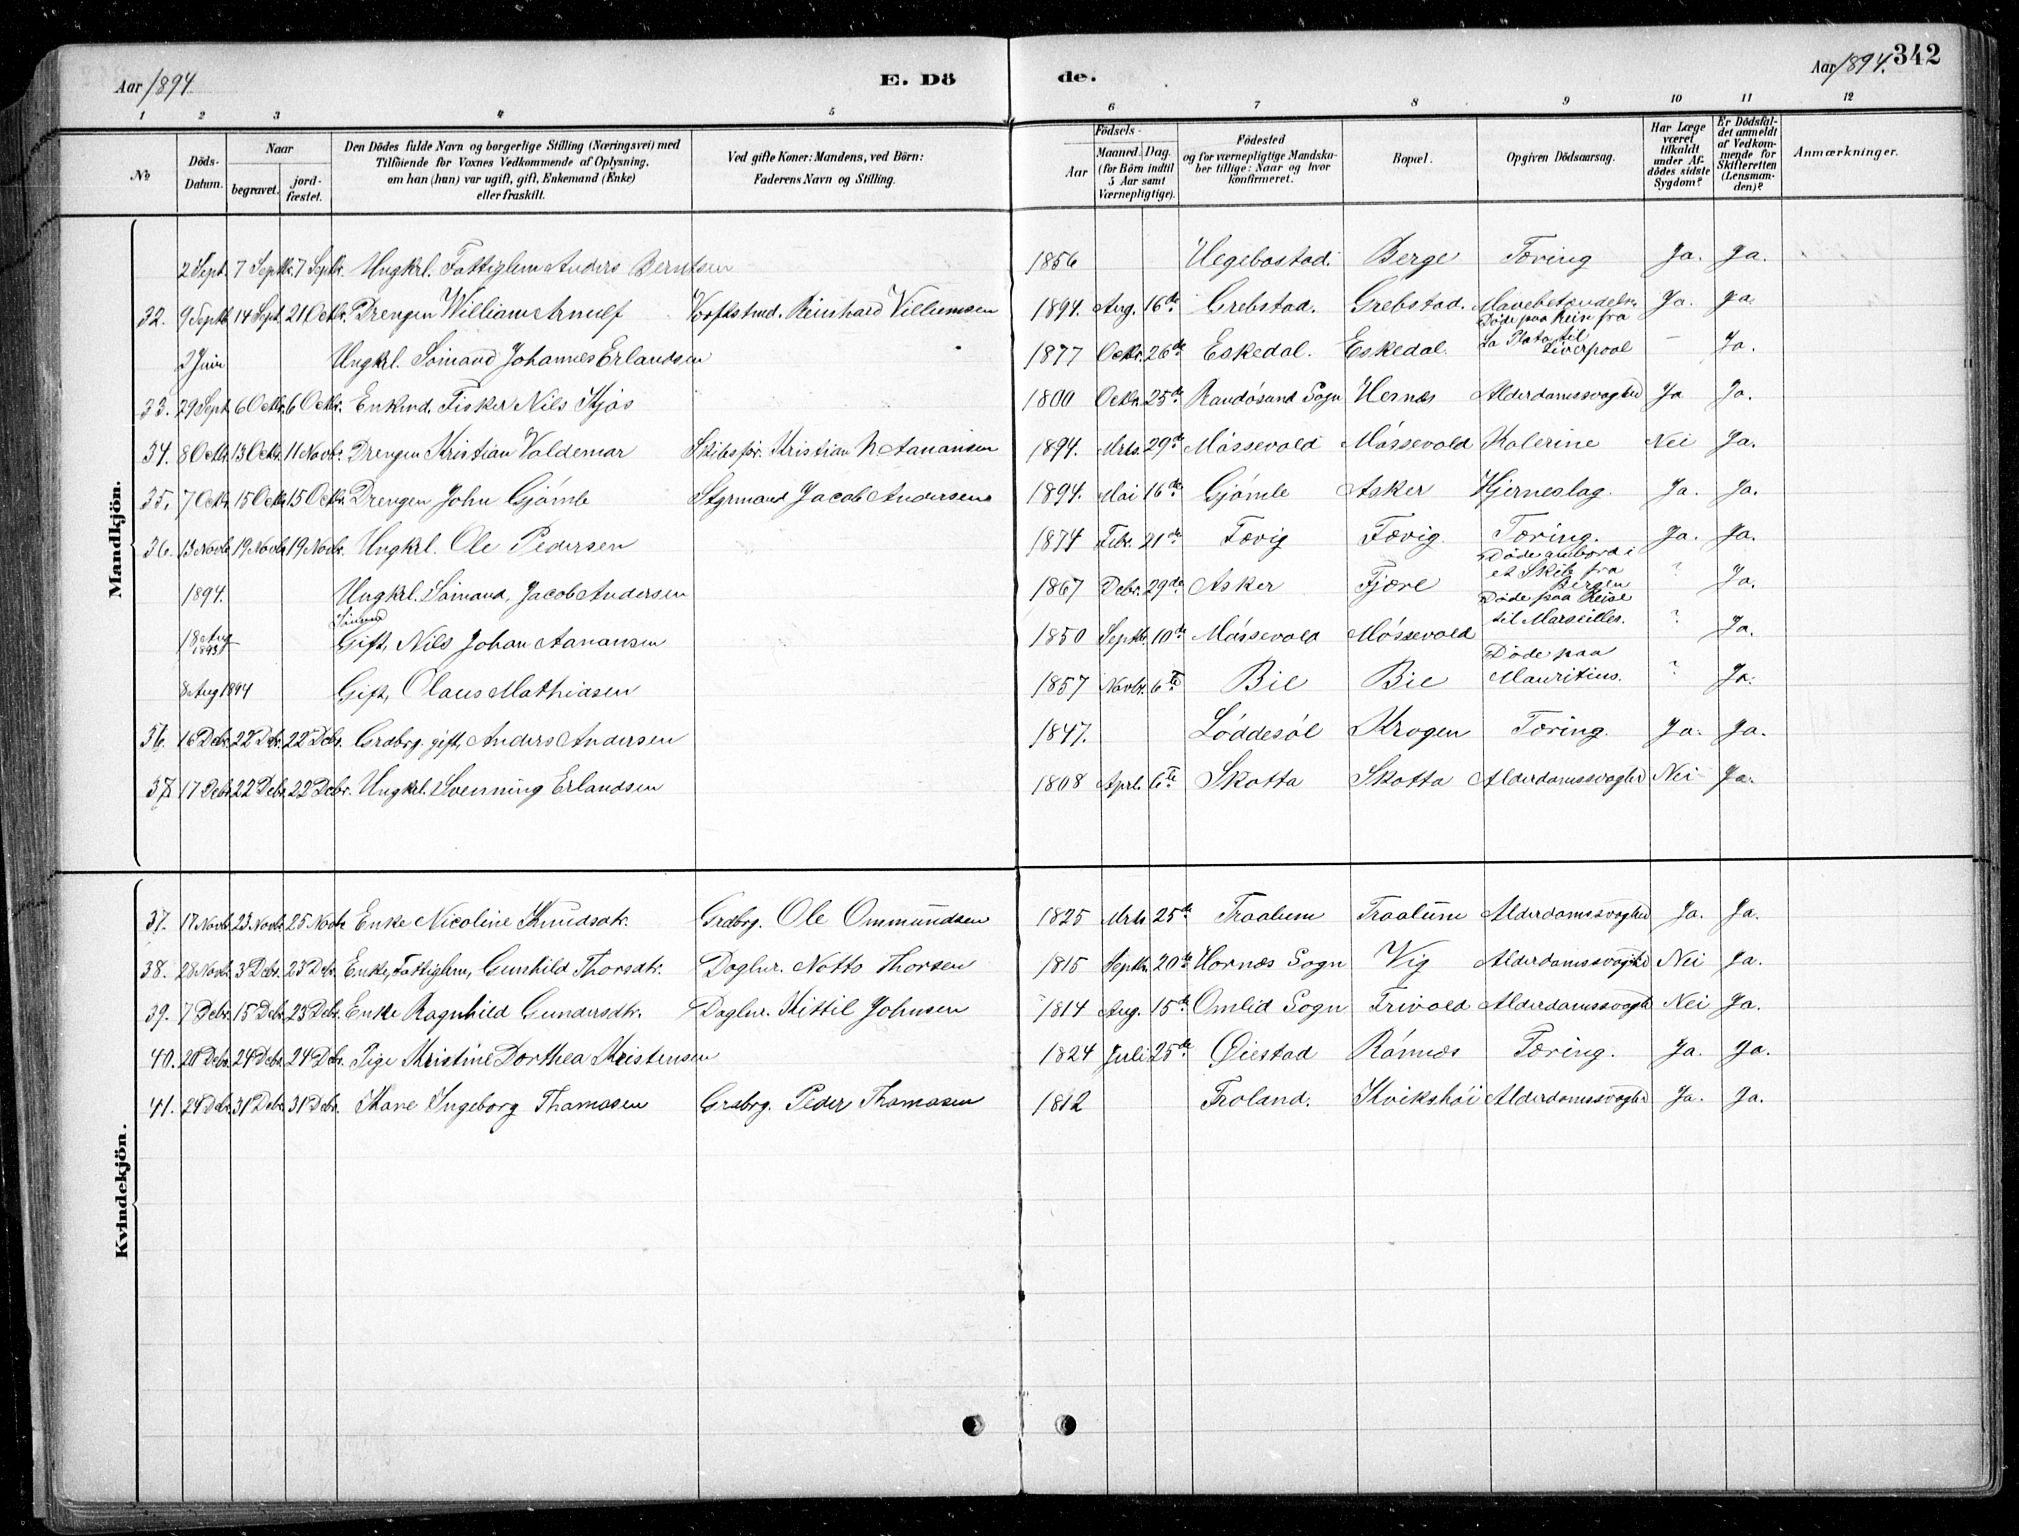 Aar 1894
E. Dö
de.
Aar 1894. 342
1 2 3 4 5 6 7 8 9 10 11 12
No
Döds-Datum.
Naar
begravet.
jordfæstet.
Den Dödes fulde Navn og borgerlige Stilling (Næringsvei) med
Tilföiende for Voxnes Vedkommende af Oplysning,
om han (hun) var ugift, gift, Enkemand (Enke)
eller fraskilt.
Ved gifte Koner: Mandens, ved Börn:
Faderens Navn og Stilling.
Födsels-
Aar
Maaned. Dag.
(for Börn indtil
5 Aar samt
Værnepligtige).
Födested
og for værnepligtige Mandska-
ber tillige: Naar og hvor
konfirmeret.
Bopæl.
Opgiven Dödsaarsag.
Har Læge
været
tilkaldt
under Af-
dödes sidste
Sygdom?
Er Dödsfal-
det anmeldt
af Vedkom-
mende for
Skifteretten
(Lensman-
den)?
Anmærkninger.
Mandkjön.
2 Sept. 7 Septbr. 7 Septbr. Ungkrl. Fattiglem Anders Berntsen 1856 Hegebostad. Berge Tæring Ja. Ja.
32. 9 Septb. 14 Sept. 21 Octbr. Drengen William Arnulf Reinhard Villumsen 1894. Aug. 16de Grebstad. Grebstad. Mavebetændelse Ja. Ja.
2 Juni Ungkrl. Sömand Johannes Erlandsen 1877 Octbr. 26de Eskedal. Eskedal. Döde paa Reise fra
La Plata til
Liverpool — Ja.
33. 29 Sept. 6 Octbr. 6 Octbr. Enkmd. Fisker Nils Kjös 1800 Octbr. 25de Randösund Sogn Hernæs Alderdomssvaghed Ja Ja.
34. 8 Octbr. 13 Octbr. 11 Novbr. Drengen Kristian Valdemar Skibsför. Kristian N Aanansen 1894. Mrts. 29de Mössevold Mössevold Kolerine Nei Ja.
35. 7 Octbr. 15 Octbr. 15 Octbr. Drengen John Gjömle Styrmand Jacob Andersen 1894. Mai 16de Gjömle Asker Hjerneslag. Ja. Ja.
36. 13 Novb. 19 Novb. 19 Novb. Ungkrl. Ole Pedersen 1874 Febr. 21de Fævig Fævig. Tæring. Ja. Ja.
1894. Ungkrl. Sömand, Jacob Andersen 1867 Debr. 29de Asker Fjære Döde ombord i
et Skib fra
Bergen ? Ja.
18 Aug 1893 Sömand
Gift, Nils Johan Aanansen 1850 Septb. 10de Mössevold Mössevold Döde paa Reise
til Marseilles. ? Ja.
8 Aug 1894 Gift, Olaus Mathiasen 1857 Novbr. 6te Bie Bie Döde paa
Mauritius. ? Ja.
36. 16 Debr. 22 Debr. 22 Debr. Grdbrg. gift, Anders Andersen 1847. Löddesöl Krogen Tæring. Ja. Ja.
37. 17 Debr. 22 Debr. 22 Debr. Ungkrl. Svenning Erlandsen 1808 Aprl. 6te Skotta Skotta Alderdomssvaghed Nei Ja.
Kvindekjön.
37. 17 Novb. 23 Novb. 25 Novb. Enke Nicoline Knudsdtr. Grdbrg. Ole Ommundsen 1825 Mrts 25de Traalum Traalum Alderdomssvaghed Ja. Ja.
38. 28 Novb. 3 Debr. 23 Debr. Enke, Fattiglem, Gunhild Thorsdtr. Daglnr. Notto Thorsen 1815 Septbr. 20de Hornæs Sogn Vig Alderdomssvaghed Nei Ja.
39. 7 Debr. 15 Debr. 23 Debr. Enke Ragnhild Gundersdtr. Daglnr. Kittil Johnsen 1814 Aug. 15de Omlid Sogn Trivold Alderdomssvaghed Nei Ja.
40. 20 Debr. 24 Debr. 24 Debr. Pige Kristine Dorthea Kristensen 1824 Juli 25de Øiestad Rönnæs Tæring. Ja. Ja.
41. 24 Debr. 31 Debr. 31 Debr. Kone Ingeborg Thomasen Grdbrg. Peder Thomasen 1812 Froland. Kvikshöi Alderdomssvaghed Ja. Ja.